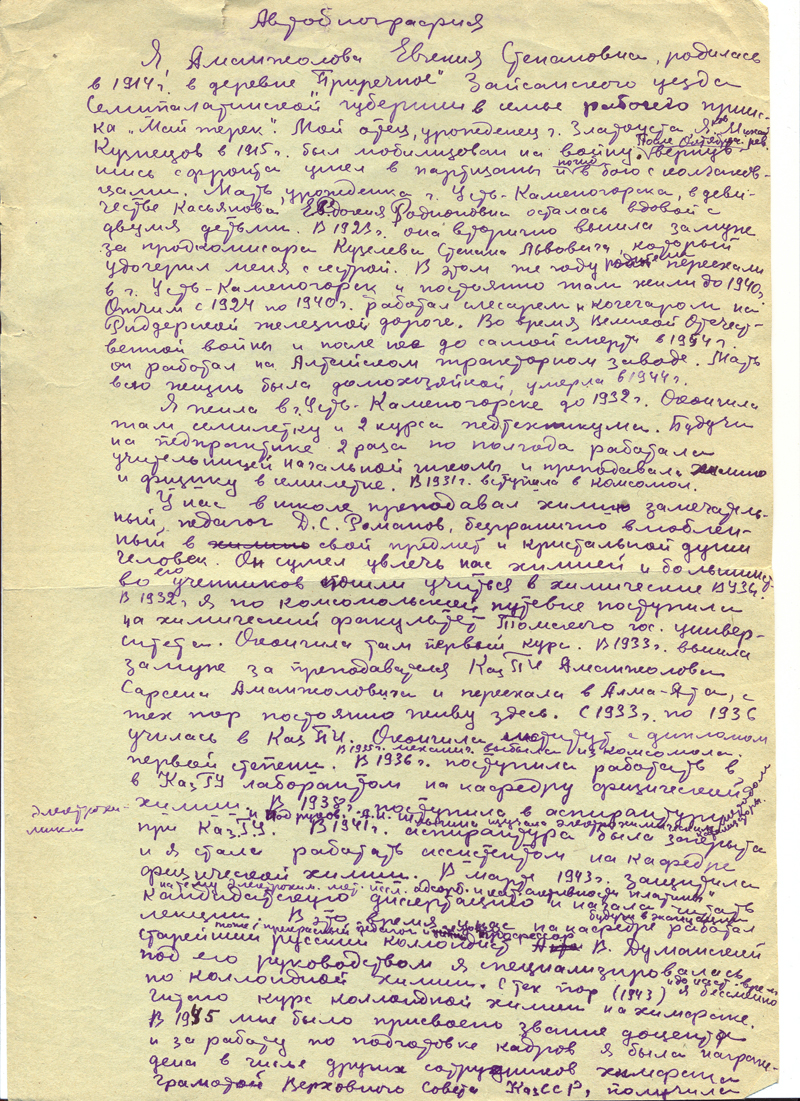 Автобиография
Я, Аманжолова Евгения Степановна, родилась
в 1914г. в деревне "Приречное" Зайсанского уезда
Семипалатинской губернии в семье рабочего прииск-
ка "Май терек". Мой отец, уроженец г. Златоуста Яков Мих.
Кузнецов в 1915г. был мобилизован на войну. После Октябр. рев. вернув-
шись с фронта ушел в партизаны и погиб в бою с колчаков-
цами. Мать, уроженка г. Усть-Каменогорска, в деви-
честве Касьянова Евдокия Родионовна осталась вдовой с
двумя детьми. В 1923г. она вторично вышла замуж
за продкомиссара Кузелева Степана Львовича, который
удочерил меня с сестрой. В этом же году переехали
в г. Усть-Каменогорск и постоянно там жили до 1940г.
Отчим с 1924 по 1940г. работал слесарем и кочегаром на
Риддерской железной дороге. Во время Великой Отечест-
венной войны и после до самой смерти в 1954г.
он работал на Алтайском тракторном заводе. Мать
всю жизнь была домохозяйкой, умерла в 1944г.
Я жила в г. Усть-Каменогорске до 1932г. Окончила
там семилетку и 2 курса педтехникума. Будучи
на педпрактике 2 раза по полгода работала
учительницей начальной школы и преподавала химию
и физику в семилетке. В 1931г. вступила в комсомол.
У нас в школе преподавал химию замечатель-
ный педагог Д.С. Романов, безгранично влюблен-
ный в химию свой предмет и кристальной души
человек. Он сумел увлечь нас химией и большинст-
во его учеников пошли учиться в химические ВУЗы.
В 1932г я по комсомольской путевке поступила
на химический факультет Томского гос. универ-
ситета. Окончила там первый курс. В 1933г. вышла
замуж за преподавателя КазПИ Аманжолова
Сарсена Аманжоловича и переехала в Алма-Ата, с
тех пор постоянно живу здесь. С 1933г. по 1936
училась в КазПИ. Окончила институт с дипломом
первой степени. В 1935г. механич. выбыла из комсомола. В 1936г. поступила работать в
в КазГУ лаборантом на кафедру физической
химии. В 1938г. поступила в аспирантуру
при КазГУ и под руков. изучала электрохимическую
Электрохи-
мики
В 1941г. аспирантура была закрыта
и я стала работать ассистентом на кафедре
физической химии. В марте 1943г. защитила
кандидатскую диссертацию на тему "Электрохим. мет. иссл. адсорб. и кат. активности платины" и начала читать
лекции. В это время у нас на кафедре работал будучи в эвакуации
старейший русский коллоидист тоже прекрасный педагог и профессор А. В. Думанский
под его руководством я специализировалась
по коллоидной химии. С тех пор (1943) до наст. время я бессменно
читаю курс коллоидной химии на химфаке.
В 1945 мне было присвоено звание доцента
и за работу по подготовке кадров я была награж-
дена в числе других сотрудников химфака
грамотой Верховного Совета КазССР, получила